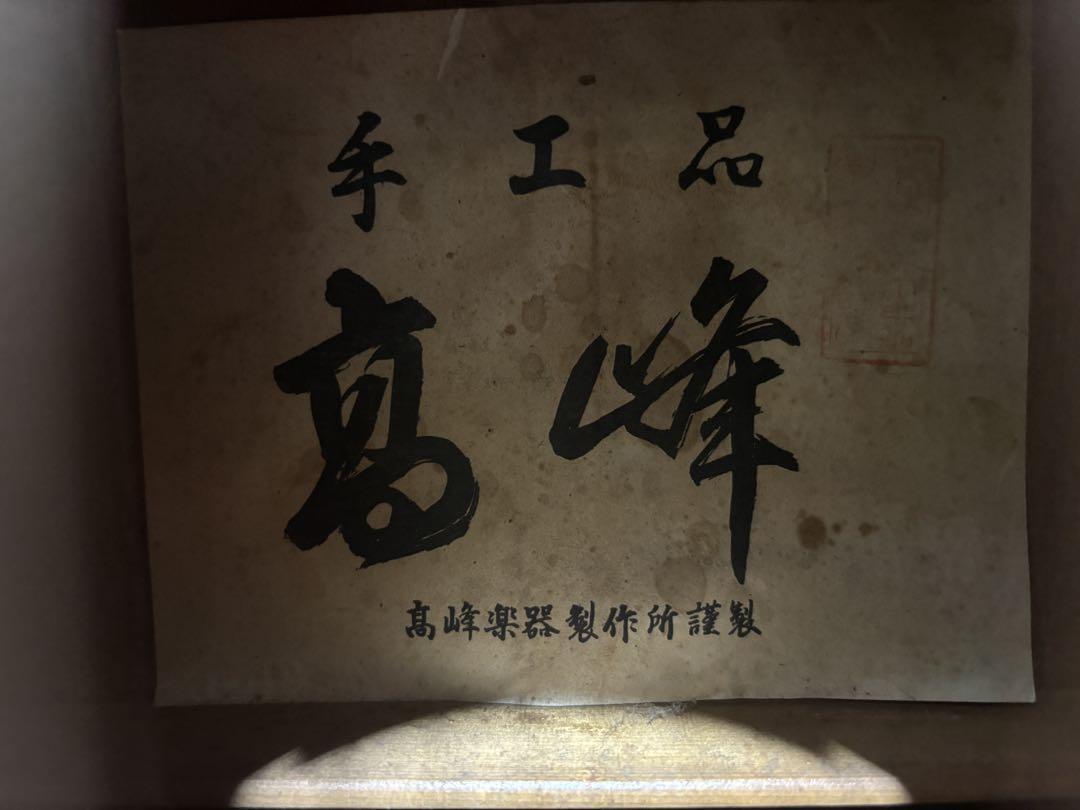 手工品
高峰
高峰楽器製作所謹製